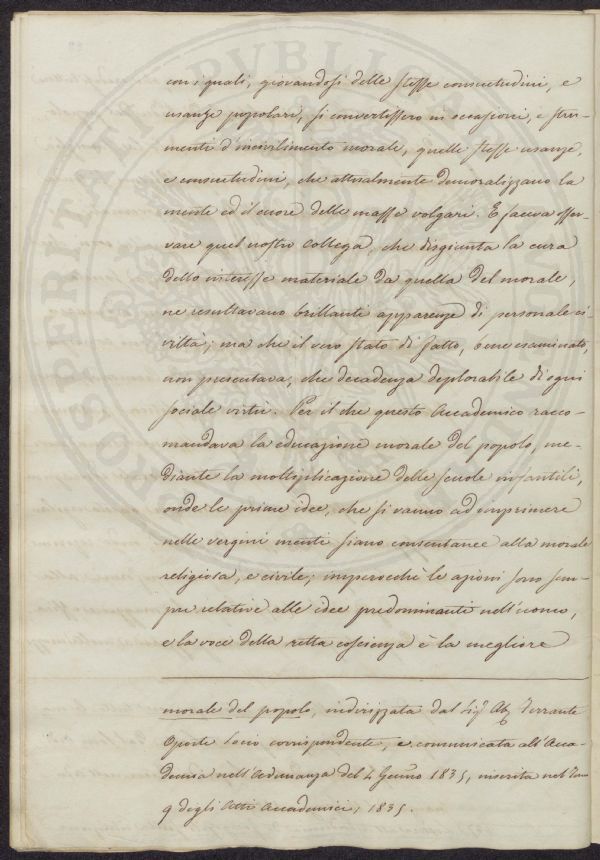 con i quali, giovandosi delle stesse consuetudini, e
usanze popolari, si convertissero in occasioni, e stru-
menti d'incivilimento morale, quelle stesse usanze,
e consuetudini, che attualmente demoralizzano la
mente ed il cuore delle masse volgari. E faceva osser-
vare quel nostro Collega, che disgiunta la cura
dello interesse materiale da quella del morale,
ne resultavano brillanti apparenze di personale ci-
viltà; ma che il vero stato di fatto, bene esaminato,
non presentava, che decadenza deplorabile di ogni
sociale virtù. Per il che questo Accademico racco-
mandava la educazione morale del popolo, me-
diante la moltiplicazione delle scuole infantili,
onde le prime idee, che si vanno ad imprimere
nelle vergini menti siano consentanee alla morale
religiosa, e civile; imperocchè le azioni sono sem-
pre relative alle idee predominanti nell'uomo,
e la voce della retta coscienza è la megliore
morale del popolo, indirizzata dal Sigr Ab. Ferrante
Aporti Socio corrispondente, e comunicata all'Acca-
demia nell'Adunanza del 4 Genno 1835, inserita nel Tom
9 degli Atti Accademici, 1835.